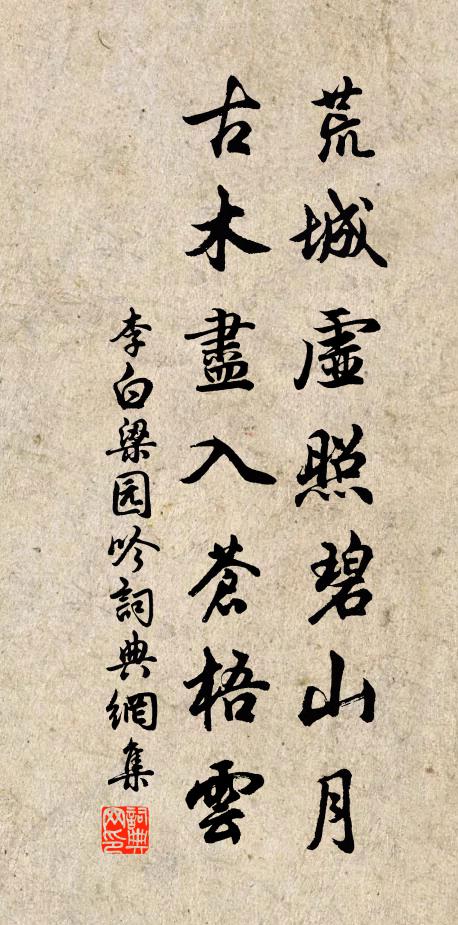 荒城虛照碧山月
古木盡入蒼梧雲
李白梁园吟詞典網集
詞典
网印